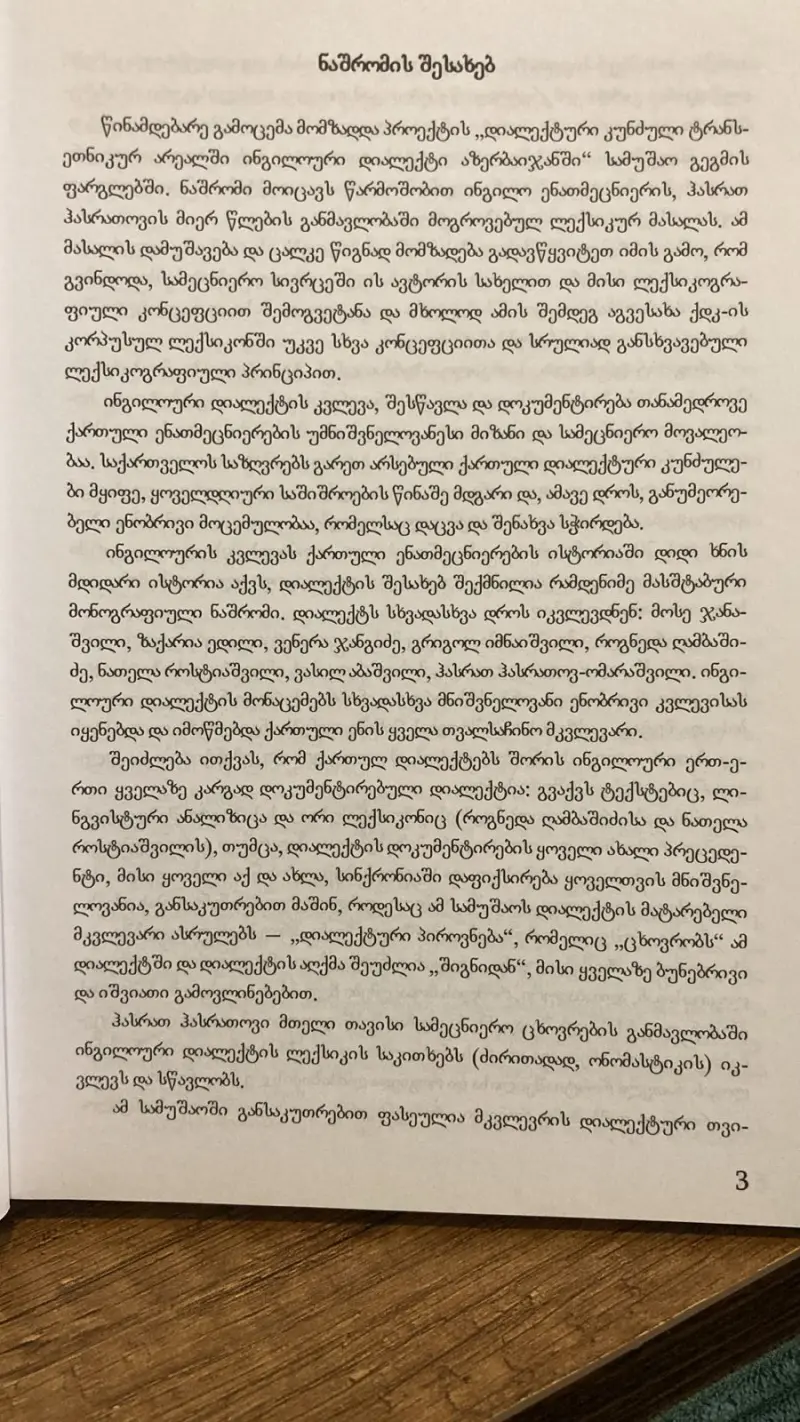 ნაშრომის შესახებ
წინამდებარე გამოცემა მომზადდა პროექტის „დიალექტური კუნძული ტრანს-
ეთნიკურ არეალში ინგილოური დიალექტი აზერბაიჯანში“ სამუშაო გეგმის
ფარგლებში. ნაშრომი მოიცავს წარმოშობით ინგილო ენათმეცნიერის, ჰასრათ
ჰასრათოვის მიერ წლების განმავლობაში მოგროვებულ ლექსიკურ მასალას. ამ
მასალის დამუშავება და ცალკე წიგნად მომზადება გადავწყვიტეთ იმის გამო, რომ
გვინდოდა, სამეცნიერო სივრცეში ის ავტორის სახელით და მისი ლექსიკოგრა-
ფიული კონცეფციით შემოგვეტანა და მხოლოდ ამის შემდეგ აგვესახა ქდკ-ის
კორპუსულ ლექსიკონში უკვე სხვა კონცეფციითა და სრულიად განსხვავებული
ლექსიკოგრაფიული პრინციპით.
ინგილოური დიალექტის კვლევა, შესწავლა და დოკუმენტირება თანამედროვე
ქართული ენათმეცნიერების უმნიშვნელოვანესი მიზანი და სამეცნიერო მოვალეო-
ბაა. საქართველოს საზღვრებს გარეთ არსებული ქართული დიალექტური კუნძულე-
ბი მყიფე, ყოველდღიური საშიშროების წინაშე მდგარი და, ამავე დროს, განუმეორე-
ბელი ენობრივი მოცემულობაა, რომელსაც დაცვა და შენახვა სჭირდება.
ინგილოურის კვლევას ქართული ენათმეცნიერების ისტორიაში დიდი ხნის
მდიდარი ისტორია აქვს, დიალექტის შესახებ შექმნილია რამდენიმე მასშტაბური
მონოგრაფიული ნაშრომი. დიალექტს სხვადასხვა დროს იკვლევდნენ: მოსე ჯანა-
შვილი, ზაქარია ედილი, ვენერა ჯანგიძე, გრიგოლ იმნაიშვილი, როგნედა ღამბაში-
ძე, ნათელა როსტიაშვილი, ვასილ აბაშვილი, ჰასრათ ჰასრათოვ-ომარაშვილი. ინგი-
ლოური დიალექტის მონაცემებს სხვადასხვა მნიშვნელოვანი ენობრივი კვლევისას
იყენებდა და იმოწმებდა ქართული ენის ყველა თვალსაჩინო მკვლევარი.
შეიძლება ითქვას, რომ ქართულ დიალექტებს შორის ინგილოური ერთ-ე-
რთი ყველაზე კარგად დოკუმენტირებული დიალექტია: გვაქვს ტექსტებიც, ლი-
ნგვისტური ანალიზიცა და ორი ლექსიკონიც (როგნედა ღამბაშიძისა და ნათელა
როსტიაშვილის), თუმცა, დიალექტის დოკუმენტირების ყოველი ახალი პრეცედე-
ნტი, მისი ყოველი აქ და ახლა, სინქრონიაში დაფიქსირება ყოველთვის მნიშვნე-
ლოვანია, განსაკუთრებით მაშინ, როდესაც ამ სამუშაოს დიალექტის მატარებელი
მკვლევარი ასრულებს — „დიალექტური პიროვნება“, რომელიც „ცხოვრობს“ ამ
დიალექტში და დიალექტის აღქმა შეუძლია „შიგნიდან“, მისი ყველაზე ბუნებრივი
და იშვიათი გამოვლინებებით.
ჰასრათ ჰასრათოვი მთელი თავისი სამეცნიერო ცხოვრების განმავლობაში
ინგილოური დიალექტის ლექსიკის საკითხებს (ძირითადად, ონომასტიკის) იკ-
ვლევს და სწავლობს.
ამ სამუშაოში განსაკუთრებით ფასეულია მკვლევრის დიალექტური თვი-
3